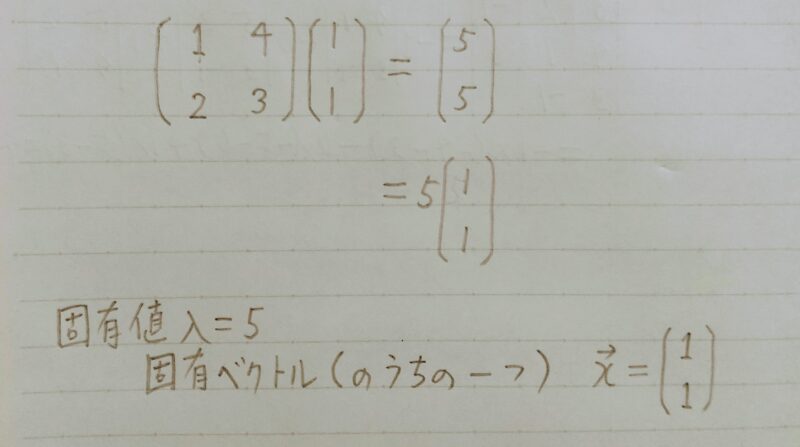 (1 4
2 3)(1
1) = (5
5)
= 5(1
1)
固有値 λ = 5
固有ベクトル(のうちの一つ) x⃗ = (1
1)